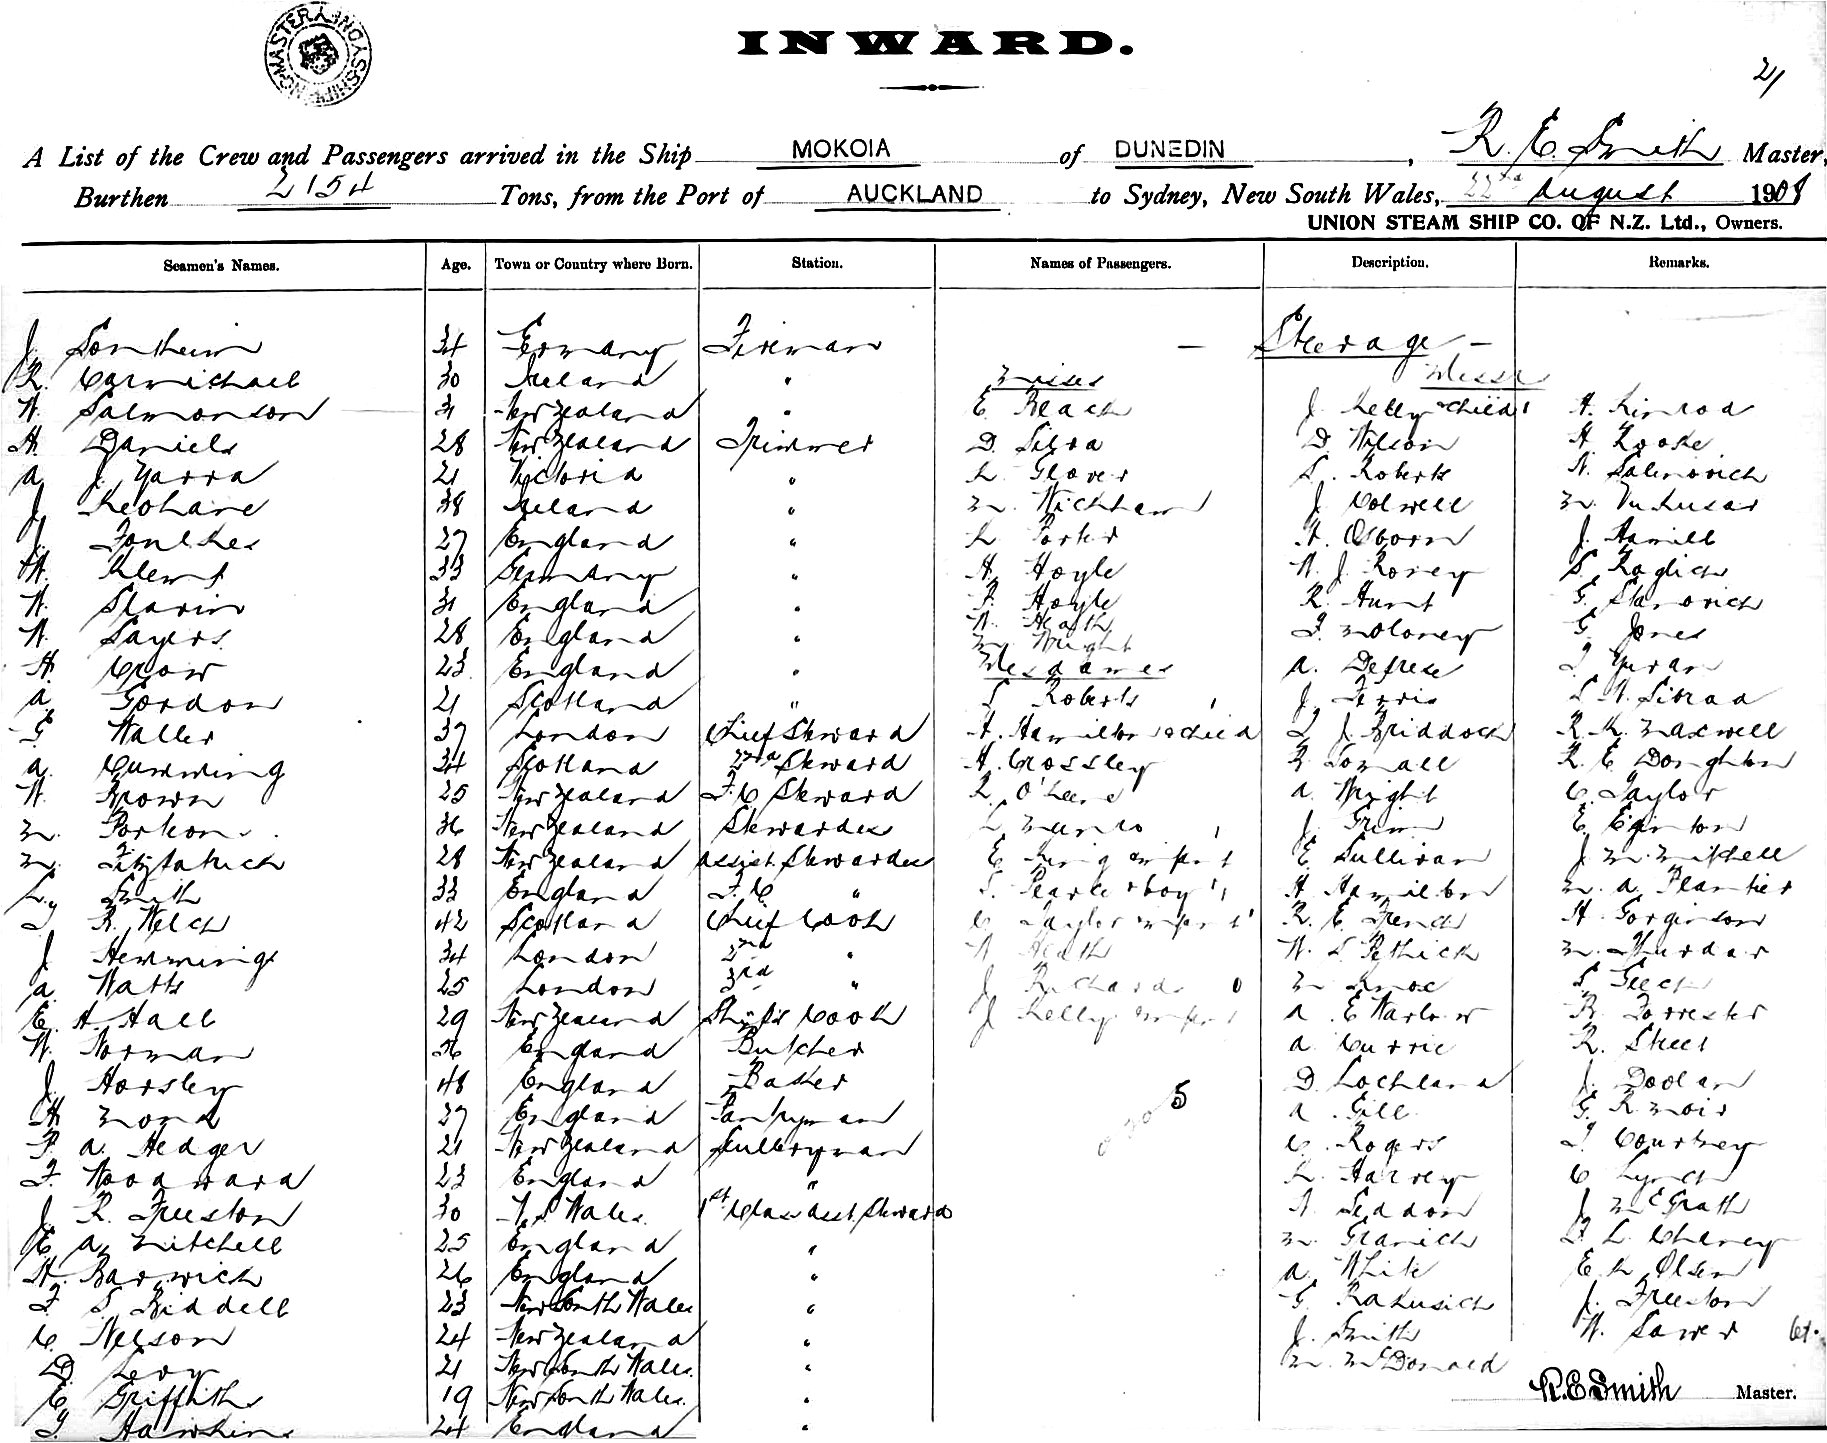 SHIPPING MASTER SYDNEY
INWARD.
21
A List of the Crew and Passengers arrived in the Ship MOKOIA of DUNEDIN, R. E. Smith Master,
Burthen 2154 Tons, from the Port of AUCKLAND to Sydney, New South Wales, 22nd August 1908
UNION STEAM SHIP CO. OF N.Z. Ltd., Owners.
Seamen's Names. Age. Town or Country where Born. Station. Names of Passengers. Description. Remarks.
J. Sontheim 34 Germany Fireman — Steerage —
R. Carmichael 30 Ireland " Misses Messrs
W. Salmonson 31 New Zealand " E. Beach J. Kelly & child 1 H. Kinrod
H. Daniels 28 New Zealand Trimmer D. Silva D. Wilson H. Kroske
A. J. Yarra 21 Victoria " L. Glover S. Roberts N. Salinovich
J. Keohane 38 Ireland " M. Wickham J. Colwell M.
J. Foulkes 27 England " L. Porter H. Osborn J. Hamill
W. Klemt 33 Germany " H. Hoyle W. J. Rovey S. Raglich
W. Slavin 31 England " P. Hoyle R. Hunt G. Stanovich
W. Sayers 28 England " N. Heath F. Moloney G. Jones
M. Wright
H. Crow 23 England " Mesdames A. Defrese J. Yuran
A. Gordon 21 Scotland " S. Roberts J. Ferris S. W. Sinead
G. Waller 37 London Chief Steward H. Hamilton & child J. J. Briddock R. K. Maxwell
A. Cumming 34 Scotland 2nd Steward H. Crossley R. Somall R. E. Doughton
W. Brown 25 New Zealand F. C Steward R. O'Keefe A. Wright C. Taylor
M. Porteous 36 New Zealand Stewardess L. Munro J. Grim E. Eginton
M. Fitzpatrick 28 New Zealand Assist. Stewardess E. King & infant E. Sullivan J. M. Mitchell
L. Smith 33 England F. C " S. Pearce & boy 1 H. Hamilton M. A. Plantier
T. R. Welch 42 Scotland Chief Cook C. Taylor & infant R. E. French H. Forginson
J. Hemmings 34 London 2nd " N. Heath W. S. Pethick M.
A. Watts 25 London 3rd " J. Richards M. Knoe S. Geech
E. H. Hall 29 New Zealand Ship's Cook J. Kelly & infant 1 A. E. Warlow R. Forrester
W. Norman 26 England Butcher A. Currie R. Steel
J. Horsley 48 England Baker D. Lochland J. Doolan
H. Mond 27 England Pantryman 5 A. Gill G. R. Moir
P. A. Hedger 21 New Zealand Sculleryman C. Rogers J. Courtney
F. Woodward 23 England " L. Harvey C. Lynch
J. R. Freeston 30 N. S. Wales. 1st Class Asst. Steward N. Seddon J. McGrath
E. A. Mitchell 25 England " M. Granich D. L. Cheney
H. Barwick 26 England " A. White E. L. Olsen
F. S. Riddell 23 New South Wales " G. Rakusich J. Freeston
C. Nelson 24 New Zealand " J. Smith W. Sawer 61.
D. Levy 21 New South Wales. " M. McDonald
E. Griffiths 19 New South Wales. " R. E Smith Master.
T. Hawkins 24 England "